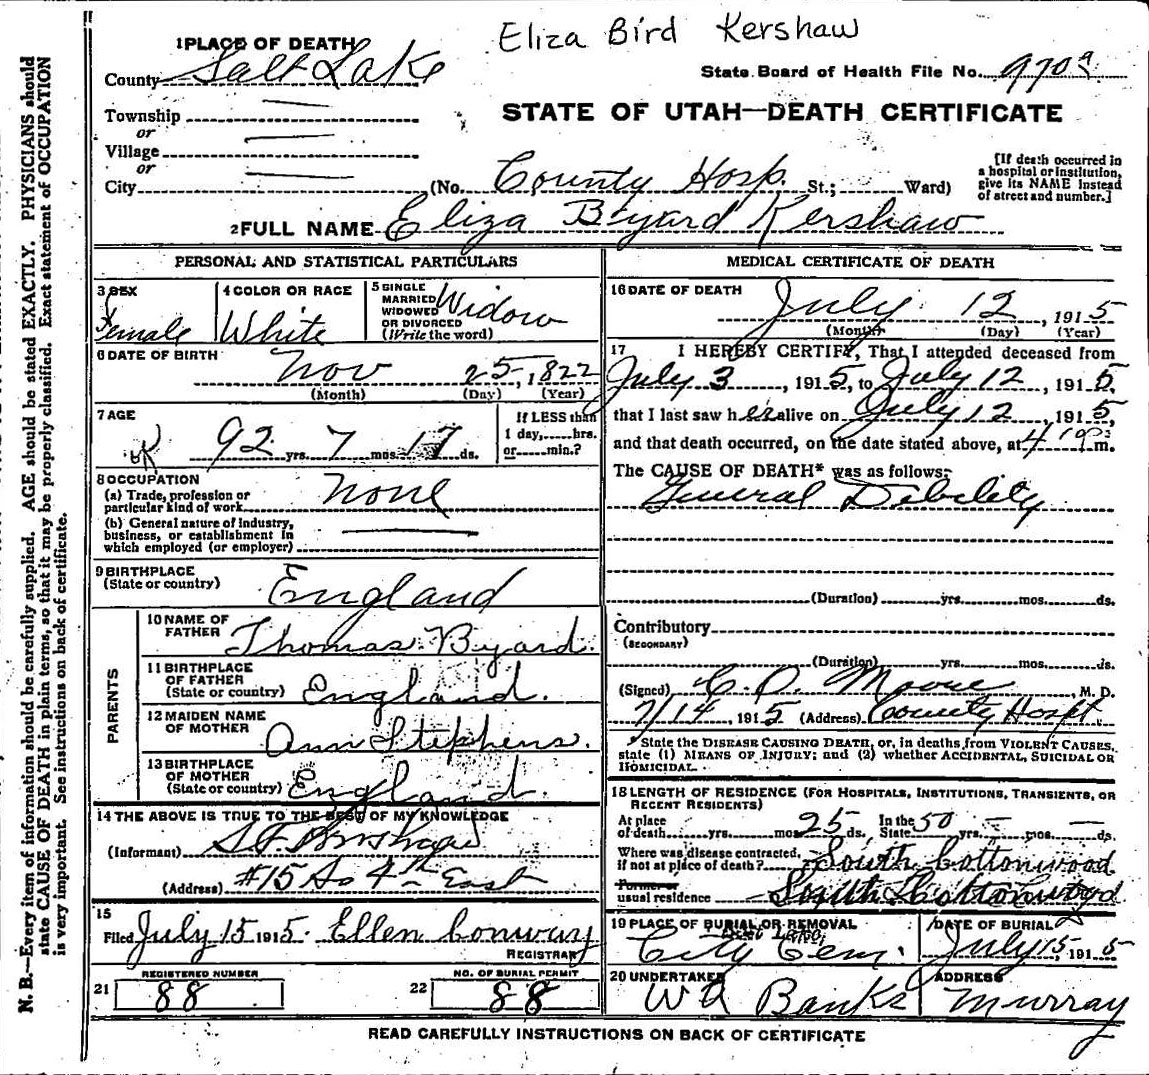 Eliza Bird Kershaw
1 PLACE OF DEATH
County Salt Lake
State Board of Health File No.
Township
or
STATE OF UTAH—DEATH CERTIFICATE
Village
or
City (No. County Hosp. St.; Ward)
[If death occurred in a hospital or institution, give its NAME instead of street and number.]
2 FULL NAME Eliza Byard Kershaw
PERSONAL AND STATISTICAL PARTICULARS
3 SEX Female
4 COLOR OR RACE White
5 SINGLE MARRIED WIDOWED OR DIVORCED (Write the word) Widow
6 DATE OF BIRTH Nov 25, 1822
(Month) (Day) (Year)
7 AGE 92 yrs. 7 mos. 17 ds.
If LESS than 1 day, hrs. or min.?
8 OCCUPATION
(a) Trade, profession or particular kind of work None
(b) General nature of industry, business, or establishment in which employed (or employer)
9 BIRTHPLACE
(State or country) England
PARENTS
10 NAME OF FATHER Thomas Byard.
11 BIRTHPLACE OF FATHER (State or country) England.
12 MAIDEN NAME OF MOTHER Ann Stephens.
13 BIRTHPLACE OF MOTHER (State or country) England.
14 THE ABOVE IS TRUE TO THE BEST OF MY KNOWLEDGE
(Informant) Kershaw
(Address) #15 So 4th East
15
Filed July 15 1915. Ellen Conway
REGISTRAR
21 REGISTERED NUMBER 88
22 NO. OF BURIAL PERMIT 88
MEDICAL CERTIFICATE OF DEATH
16 DATE OF DEATH July 12, 1915
(Month) (Day) (Year)
17 I HEREBY CERTIFY, That I attended deceased from
July 3, 1915, to July 12, 1915,
that I last saw her alive on July 12, 1915,
and that death occurred, on the date stated above, at 4 m.
The CAUSE OF DEATH* was as follows:
General Debility
(Duration) yrs. mos. ds.
Contributory
(SECONDARY)
(Duration) yrs. mos. ds.
(Signed) C. D. Moore, M. D.
7/14 1915 (Address) County Hospt.
* State the DISEASE CAUSING DEATH, or, in deaths from VIOLENT CAUSES,
state (1) MEANS OF INJURY; and (2) whether ACCIDENTAL, SUICIDAL OR
HOMICIDAL.
18 LENGTH OF RESIDENCE (FOR HOSPITALS, INSTITUTIONS, TRANSIENTS, OR
RECENT RESIDENTS)
At place of death yrs. mos 25 ds. In the State 50 yrs. – mos. – ds.
Where was disease contracted, if not at place of death? South Cottonwood
Former or usual residence South Cottonwood
19 PLACE OF BURIAL OR REMOVAL City Cem.
DATE OF BURIAL July 15, 1915
20 UNDERTAKER Banks
ADDRESS Murray
READ CAREFULLY INSTRUCTIONS ON BACK OF CERTIFICATE
N. B.—Every item of information should be carefully supplied. AGE should be stated EXACTLY. PHYSICIANS should
state CAUSE OF DEATH in plain terms, so that it may be properly classified. Exact statement of OCCUPATION
is very important. See instructions on back of certificate.